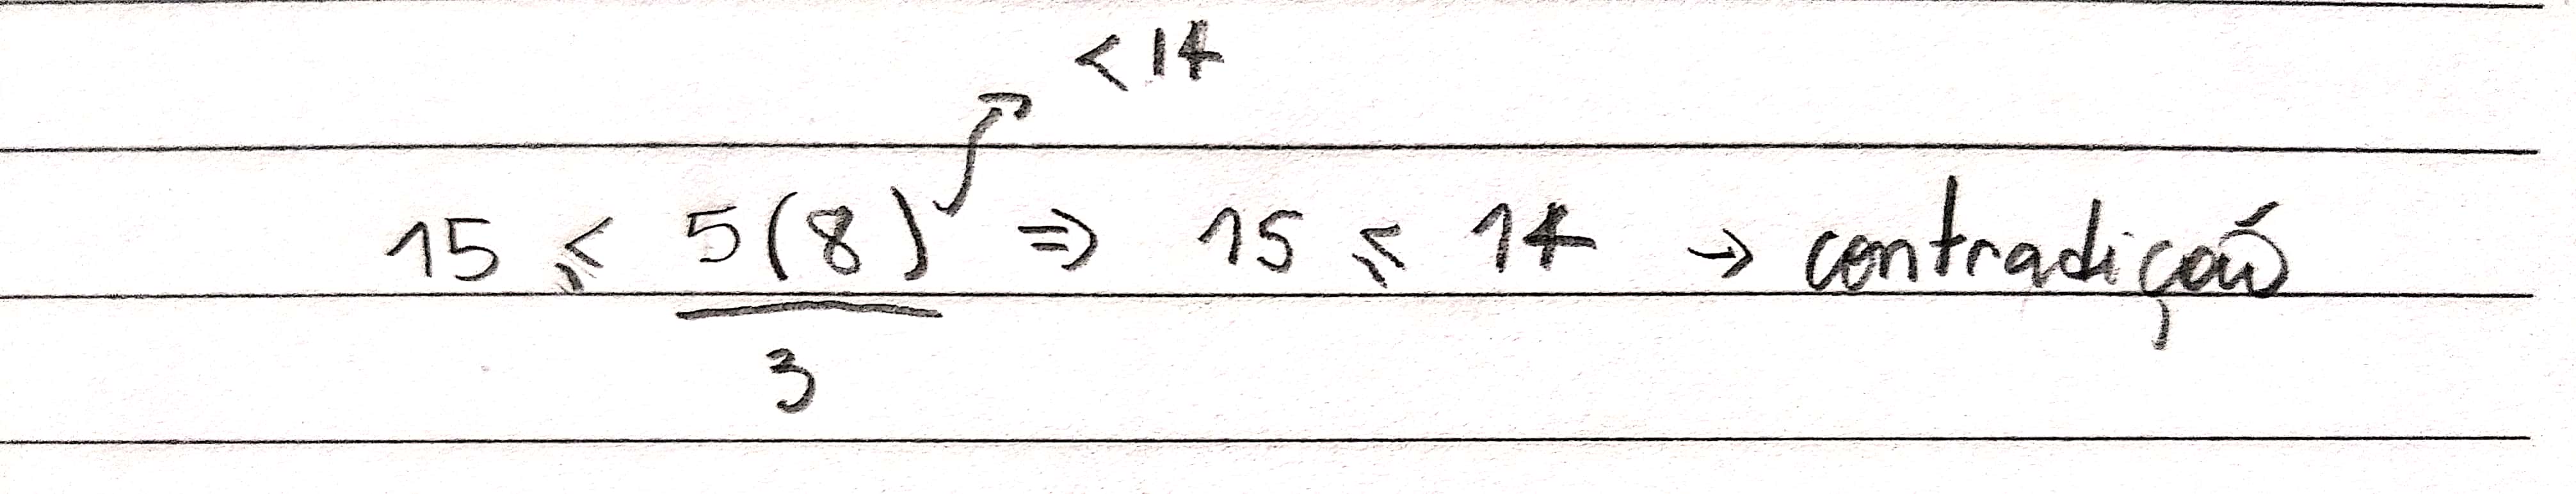 < 14
15 ≤ 5(8) ⇒ 15 ≤ 14 → contradição
3